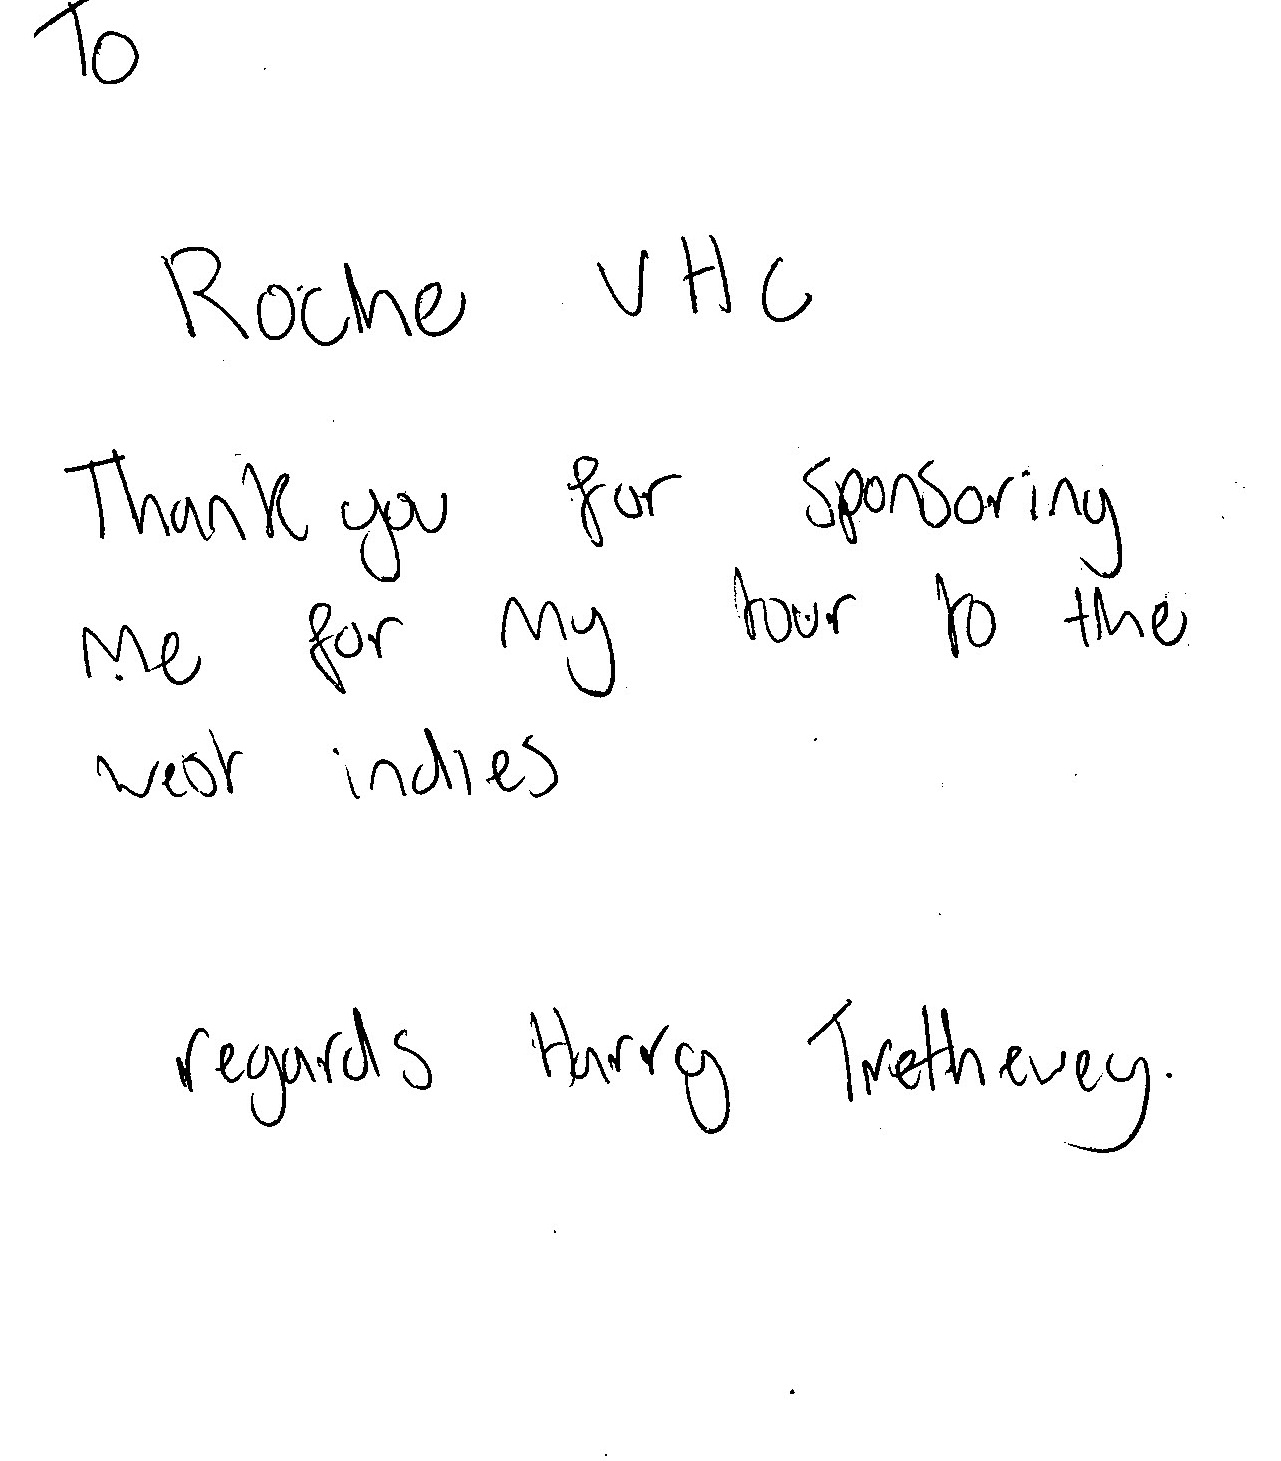 To
Roche VHC
Thank you for sponsoring
me for my tour to the
west indies
regards Harry Trethevey.